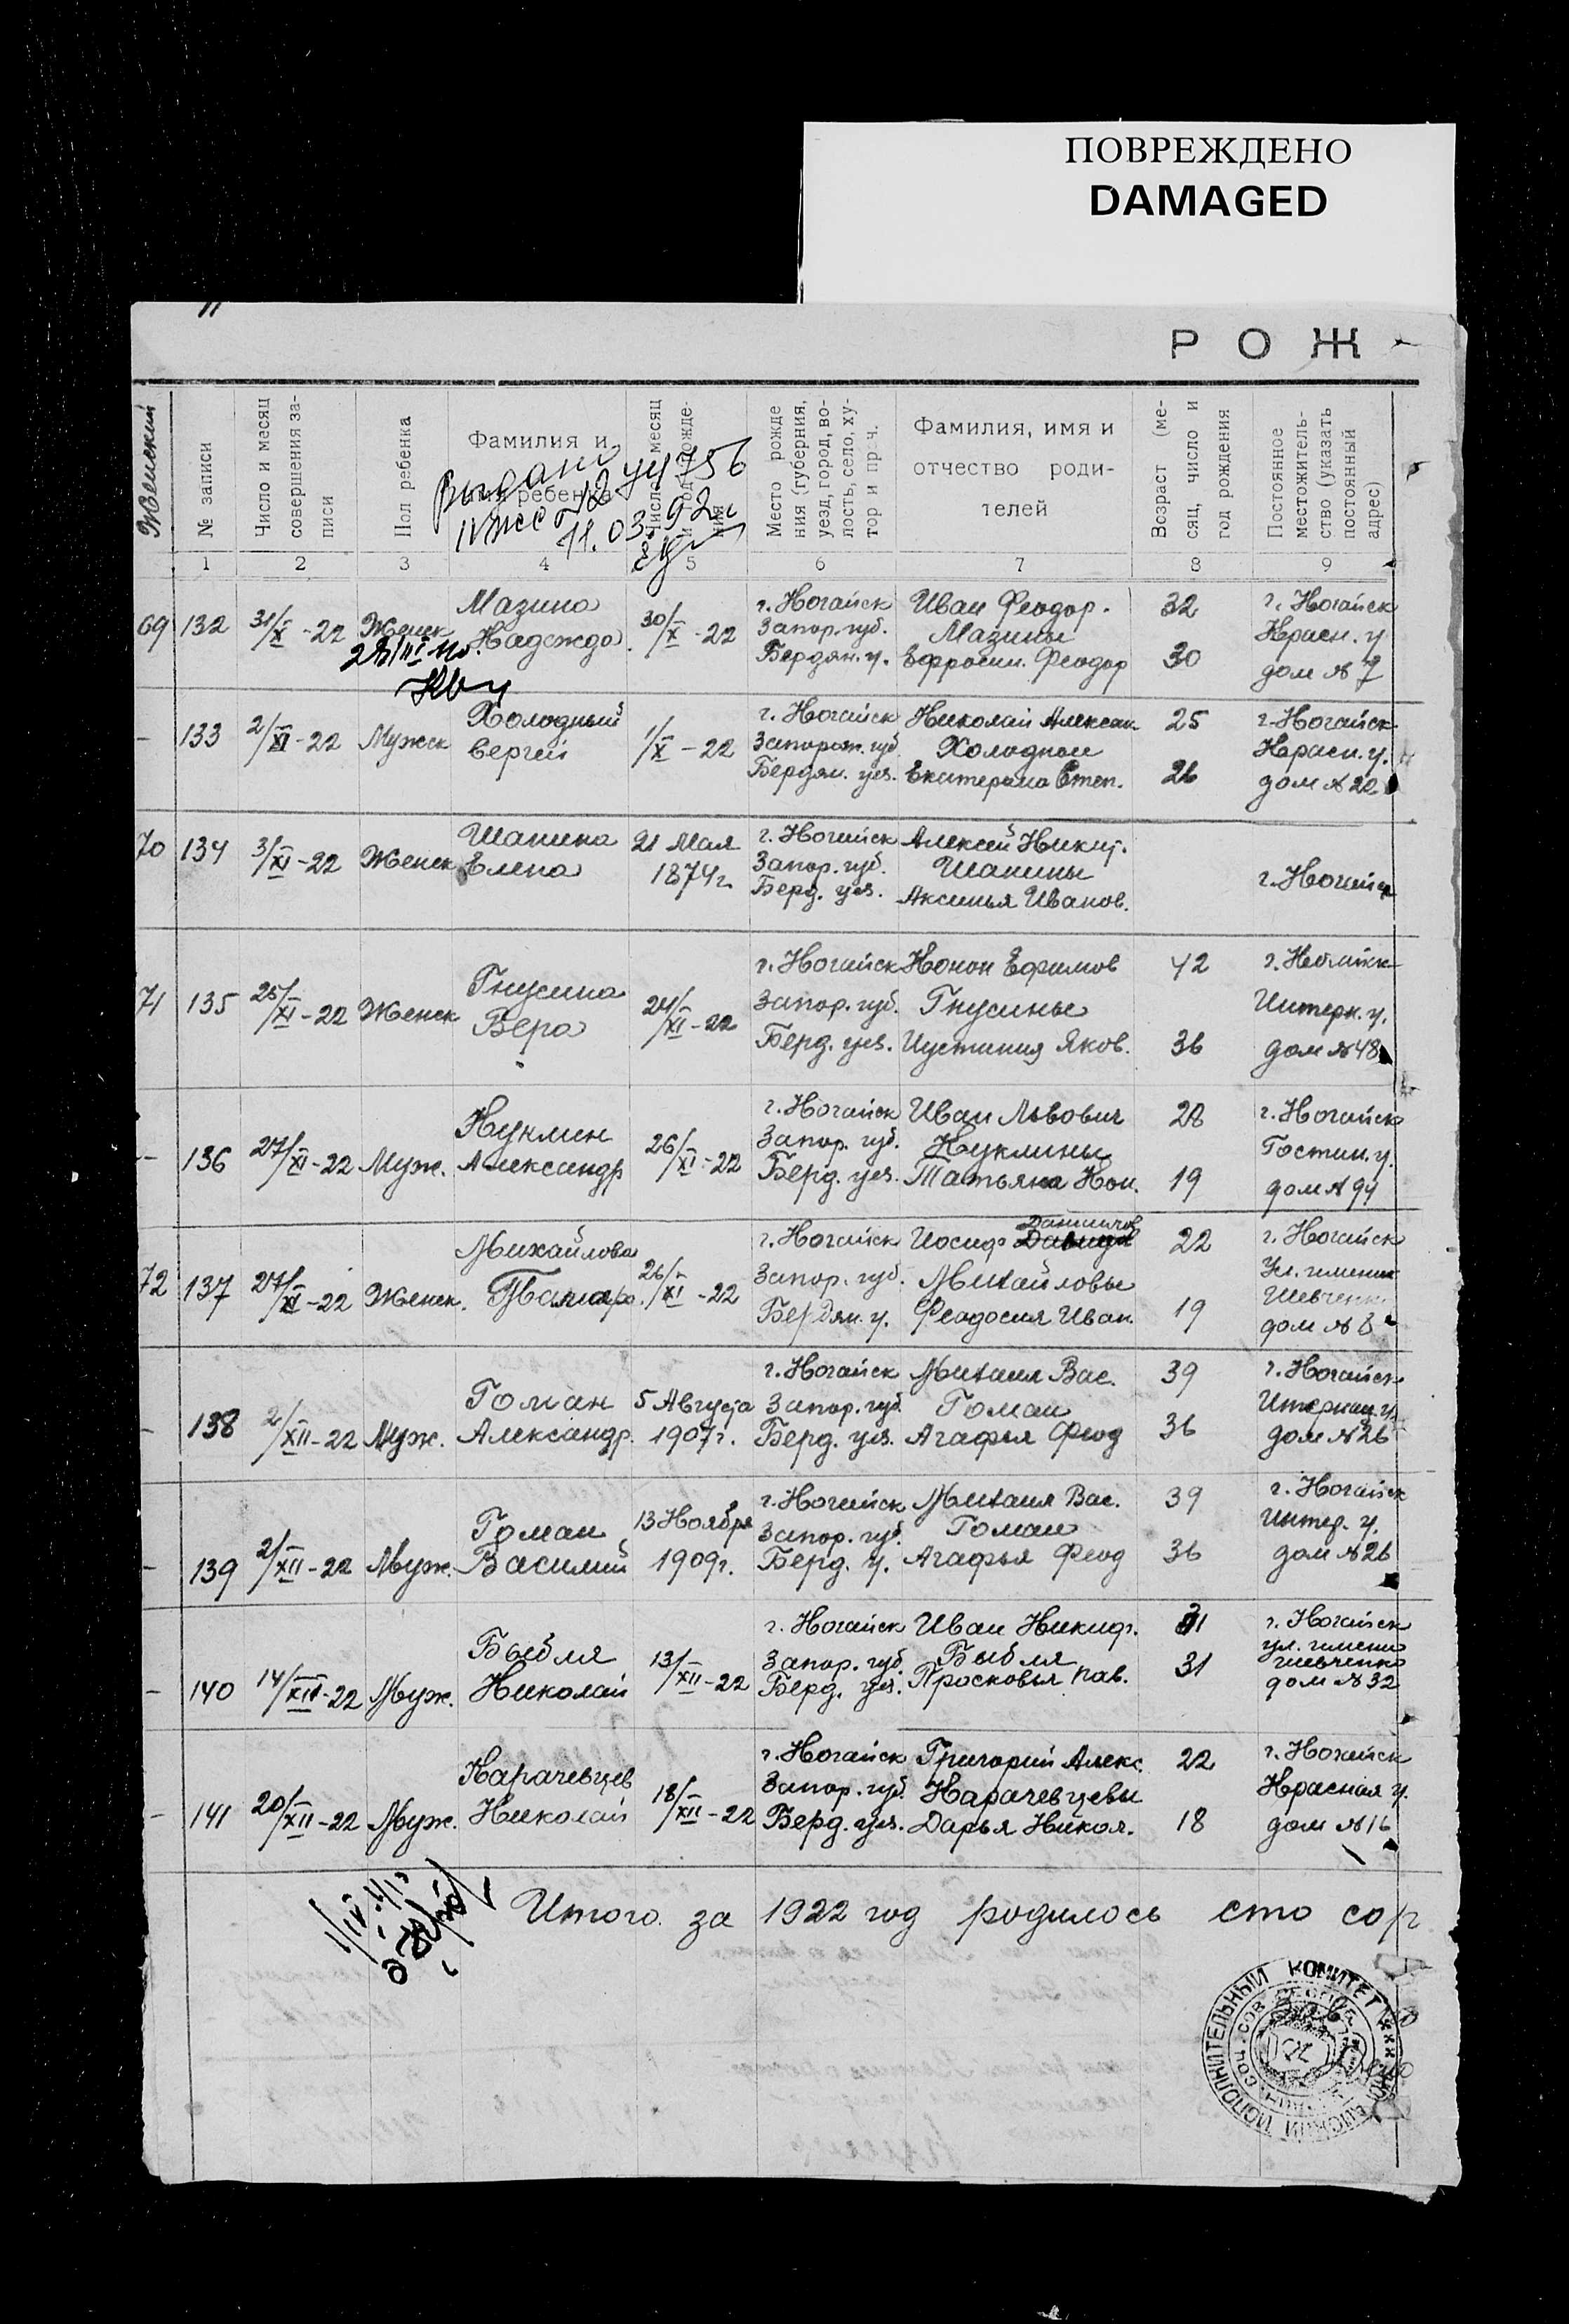 ПОВРЕЖДЕНО
DAMAGED
РОЖ
Женский
№ записи
Число и месяц совершения за-
писи
Пол ребенка
Фамилия и
имя ребенка
Число, месяц
и год рожде-
ния
Место рожде
ния (губерния,
уезд, город, во-
лость, село, ху-
тор и проч.
Фамилия, имя и
отчество роди-
телей
Возраст (ме-
сяц, число и
год рождения
Постоянное
местожитель-
ство (указать
постоянный
адрес)
Выдано
11.03.92г
1 2 3 4 5 6 7 8 9
69 132 31/X-22 Женск. Мазина Надежда 30/X-22 г. Ногайск Запор. губ. Бердян. у. Иван Феодор. Мазины Ефросин. Феодор 32 30 г. Ногайск Красн. у дом №7
– 133 2/XI-22 Мужск Холодный Сергей 1/X-22 г. Ногайск Запорож. губ Бердян. уез. Николай Алексан Холодные Екатерина Степ. 25 26 г. Ногайск Красн. у. дом №20
70 134 3/XI-22 Женск Шанина Елена 21 Мая 1874г. г. Ногайск Запор. губ. Берд. уез. Алексей Никит. Шанины Аксинья Иванов. г. Ногайск
71 135 25/XI-22 Женск Гнусина Вера 24/XI-22 г. Ногайск Запор. губ. Берд. уез. Конон Ефимов Гнусины Иустиния Яков. 42 36 г. Ногайск Интерн. у. дом №48
– 136 27/XI-22 Муж. Куклин Александр 26/XI-22 г. Ногайск Запор. губ. Берд. уез. Иван Львович Куклины Татьяна Кон. 20 19 г. Ногайск Гостин. у. дом №94
72 137 27/XI-22 Женск. Михайлова Тамара 26/XI-22 г. Ногайск Запор. губ. Бердян. у. Иосиф Данилов Михайловы Феодосия Иван. 22 19 г. Ногайск Ул. имени Шевченк дом №8
– 138 2/XII-22 Муж. Гоман Александр. 5 Августа 1907г. г. Ногайск Запор. губ. Берд. уез. Михаил Вас. Гоман Агафья Феод 39 36 г. Ногайск Интернац. у. дом №26
– 139 2/XII-22 Муж. Гоман Василий 13 Ноября 1909г. г. Ногайск Запор. губ. Берд. у. Михаил Вас. Гоман Агафья Феод 39 36 г. Ногайск Интер. у. дом №26
– 140 14/XII-22 Муж. Быбля Николай 13/XII-22 г. Ногайск Запор. губ. Берд. уез. Иван Никиф. Быбля Просковья Пав. 31 31 г. Ногайск ул. имени Шевченко дом №32
– 141 20/XII-22 Муж. Карачевцев Николай 18/XII-22 г. Ногайск Запор. губ. Берд. уез. Григорий Алекс. Карачевцевы Дарья Никол. 22 18 г. Ногайск Красная у. дом №16
Итого за 1922 год родилось сто сор
ИСПОЛНИТЕЛЬНЫЙ КОМИТЕТ